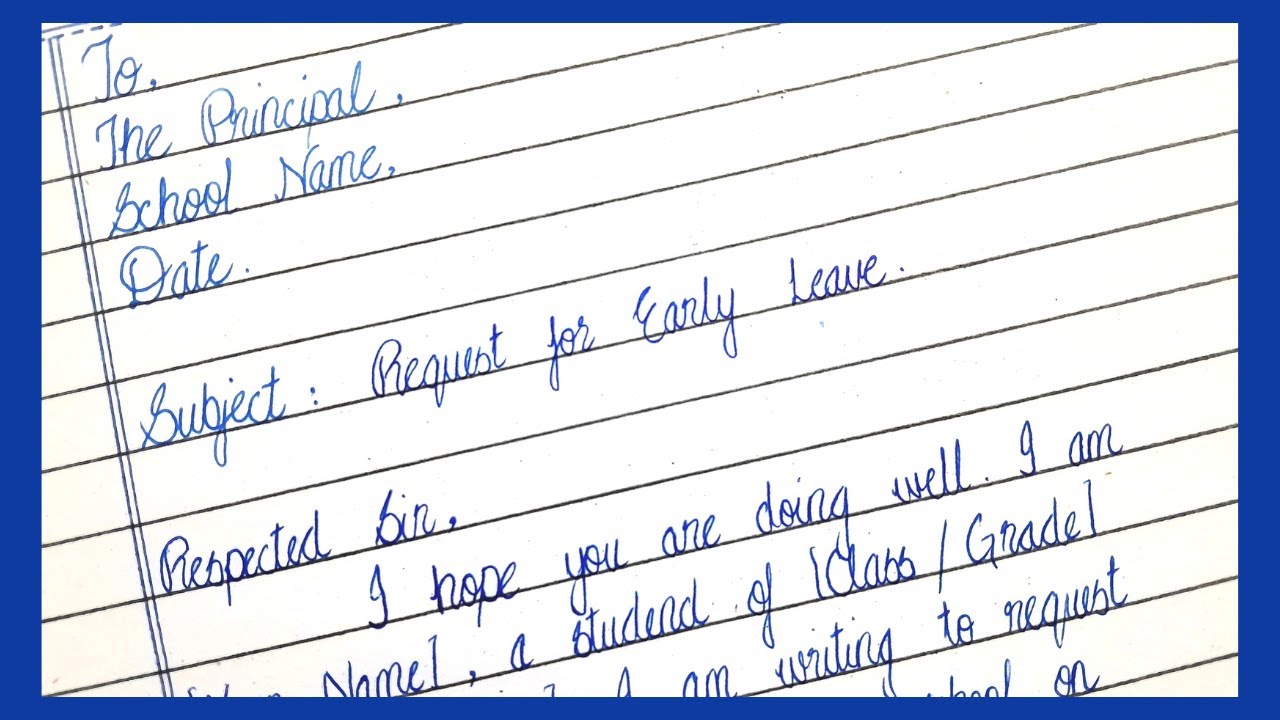 To,
The Principal,
School Name,
Date.
Subject: Request for Early Leave.
Respected Sir,
I hope you are doing well. I am
Name], a studend of [Class / Grade]
I am writing to request
on